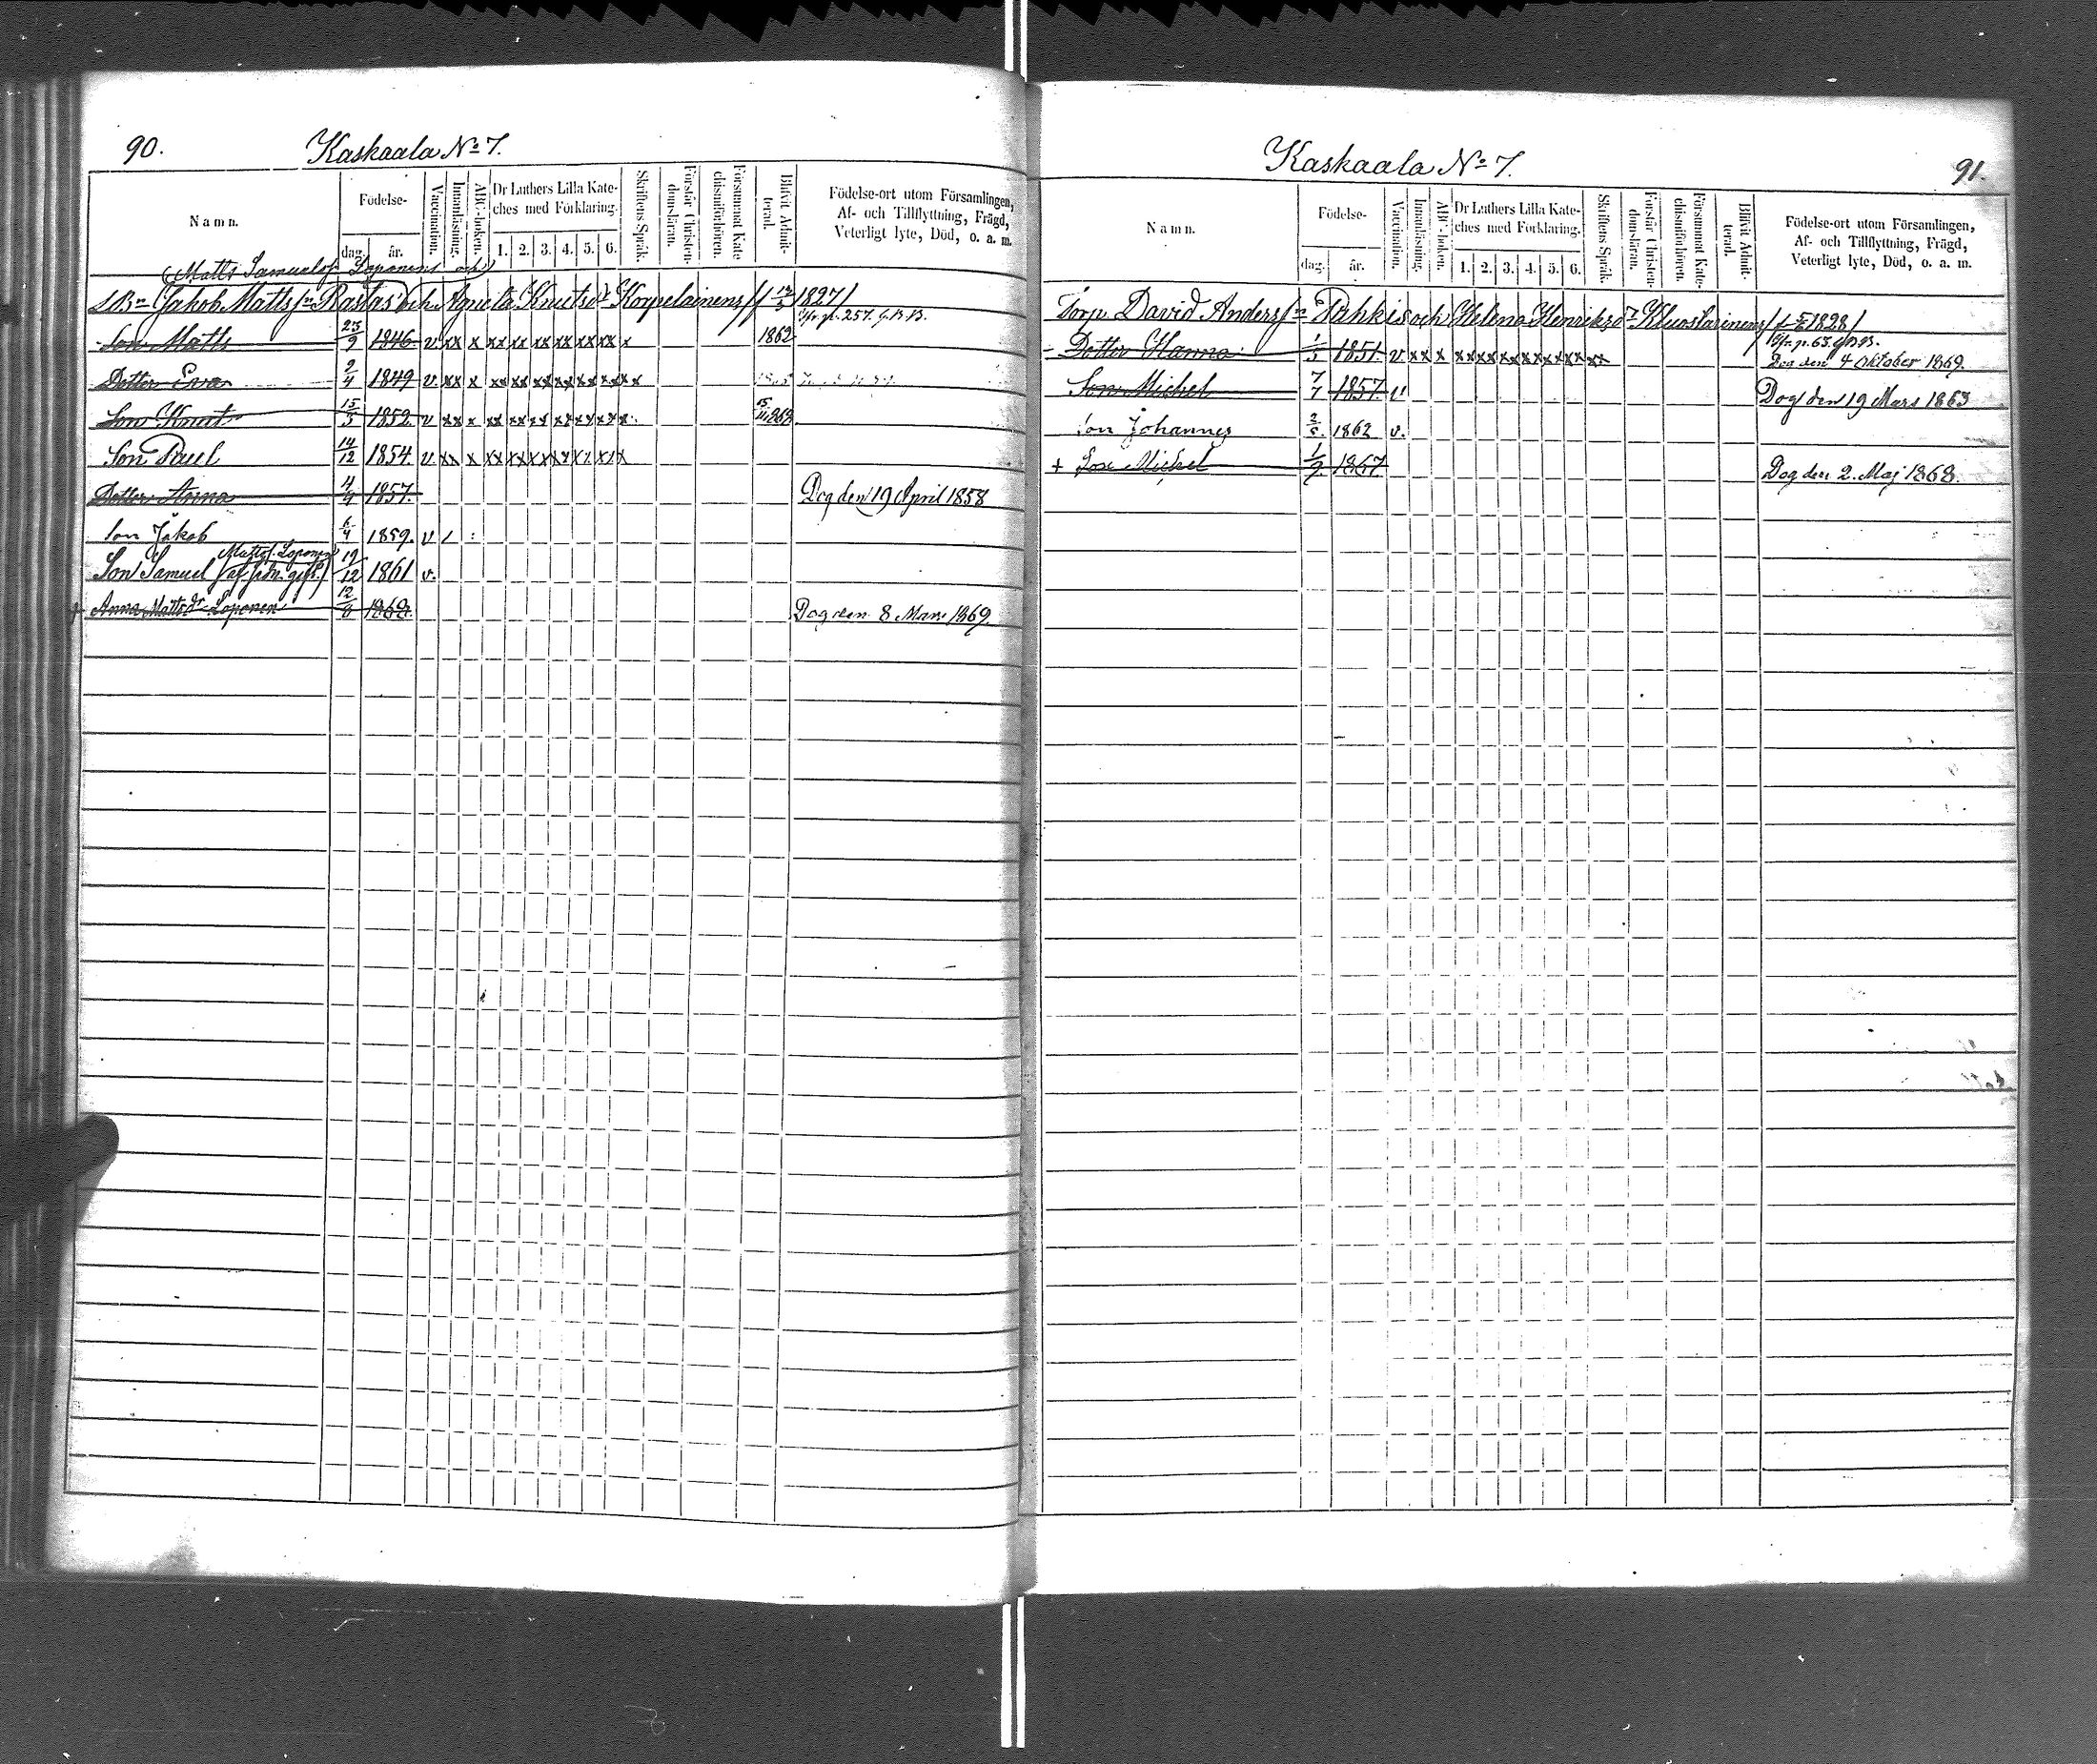 90.
Kaskaala No 7.
Namn.
Födelse-
dag.
år.
Vaccination.
Innanläsning.
ABC-boken.
Dr Luthers Lilla Kate-
ches med Förklaring.
1. 2. 3. 4. 5. 6.
Skriftens Språk.
Förstår Christen-
domsläran.
Försummat Kate-
chismiförhören.
Blifvit Admit-
terad.
Födelse-ort utom Församlingen,
Af- och Tillflyttning, Frägd,
Veterligt lyte, Död, o. a. m.
(Matts Samuelsn Loponens och)
(Jakob Mattsn Rastas) och Agneta Knutsdr Korpelainens 1827/
257. G.B.B.
Son Matts 23/9 1846 v xx x xx xx xx xx xx xx x 1862
Dotter Eva 2/4 1849 v xx x xx xx xx xx xx xx x
Son Knut 15/3 1852 v xx x xx xx xx xx xx xx x
Son Paul 14/12 1854. v xx x xx xx xx xx xx xx x
Dotter Anna 4/4 1857. Dog den 19 April 1858
Son Jakob 6/4 1859. v /
Mattsn Loponen
Son Samuel 19/12 1861 v.
Anna Mattsdr Loponen 12/6 1868. Dog den 8 Mars 1869
Kaskaala No 7.
91.
Namn.
Födelse-
dag.
år.
Vaccination.
Innanläsning.
ABC-boken.
Dr Luthers Lilla Kate-
ches med Förklaring.
1. 2. 3. 4. 5. 6.
Skriftens Språk.
Förstår Christen-
domsläran.
Försummat Kate-
chismiförhören.
Blifvit Admit-
terad.
Födelse-ort utom Församlingen,
Af- och Tillflyttning, Frägd,
Veterligt lyte, Död, o. a. m.
Torp. David Andersn och Helena Henriksdr 1828/
Dotter Hanna 1/3 1851 v xx x xx xx xx xx xx xx xx Dog den 4 Oktober 1869.
Son Michel 7/7 1857 v Dog den 19 Mars 1863
Son Johannes 1862 v.
+ Son Michel 1/9 1867 Dog den 2. Maj 1868.